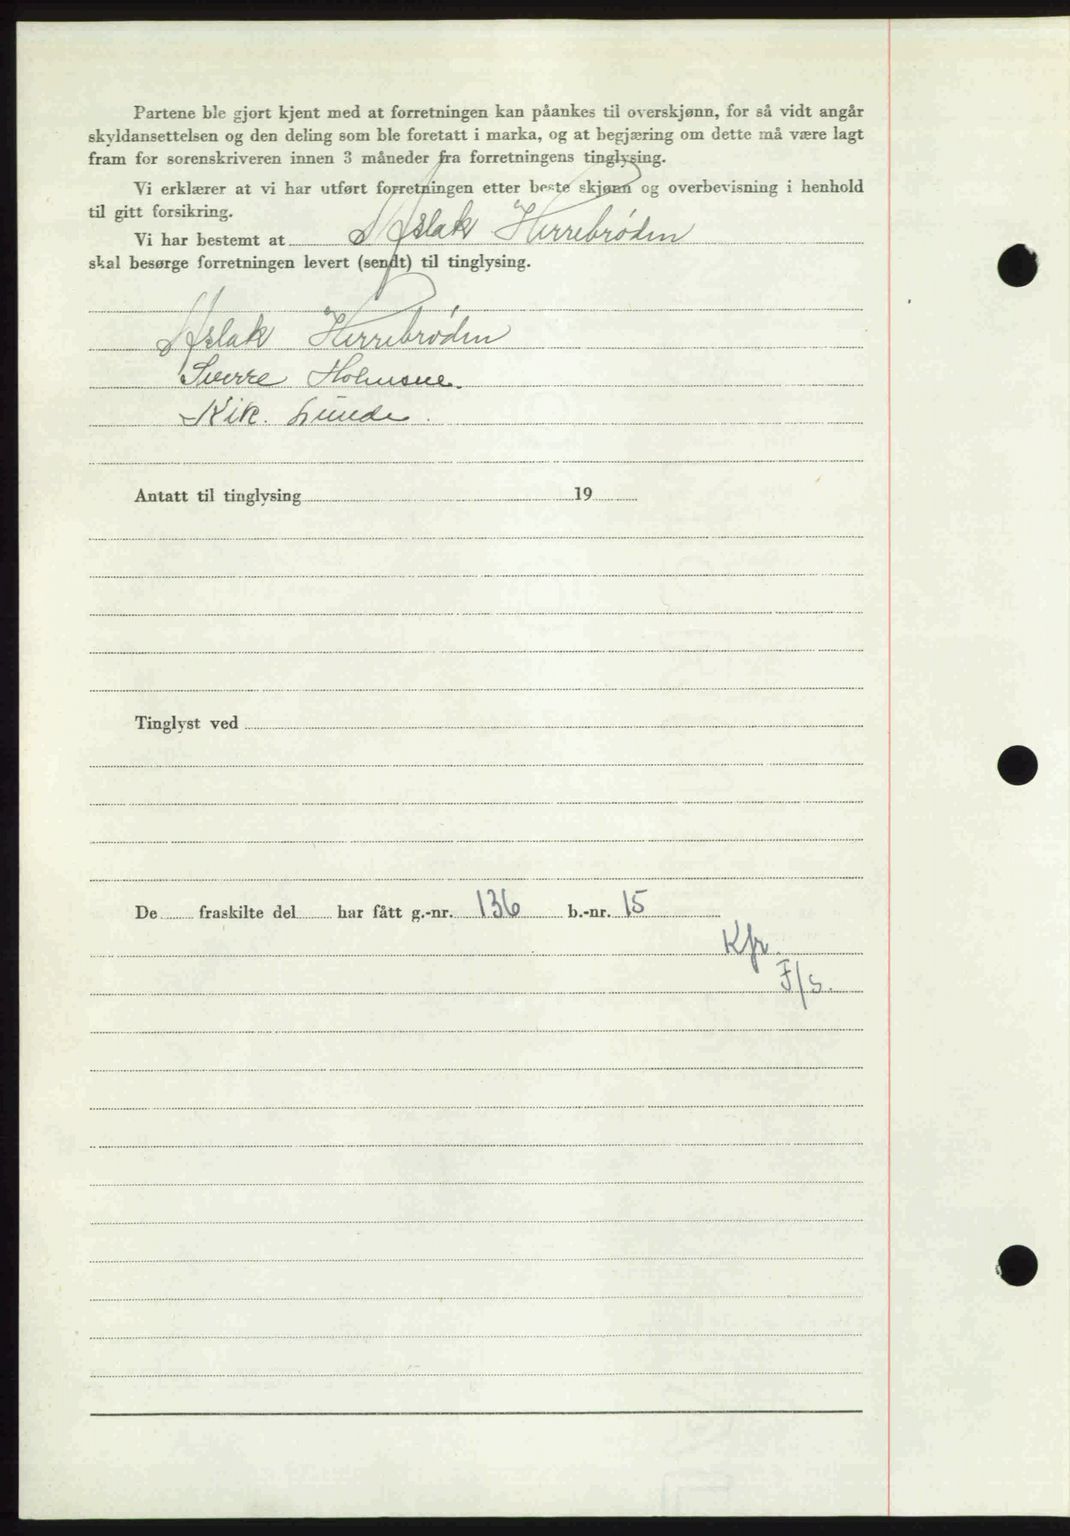 Partene ble gjort kjent med at forretningen kan påankes til overskjønn, for så vidt angår
skyldansettelsen og den deling som ble foretatt i marka, og at begjæring om dette må være lagt
fram for sorenskriveren innen 3 måneder fra forretningens tinglysing.
Vi erklærer at vi har utført forretningen etter beste skjønn og overbevisning i henhold
til gitt forsikring.
Vi har bestemt at Aslak Herrebrøden
skal besørge forretningen levert (sendt) til tinglysing.
Aslak Herrebrøden
Sverre Holmsen.
Nik. Lunde.
Antatt til tinglysing 19
Tinglyst ved
De fraskilte del har fått g.-nr. 136 b.-nr. 15
Kfr.
F/S.